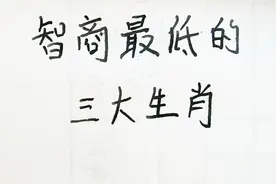 智商最低的
三大生肖